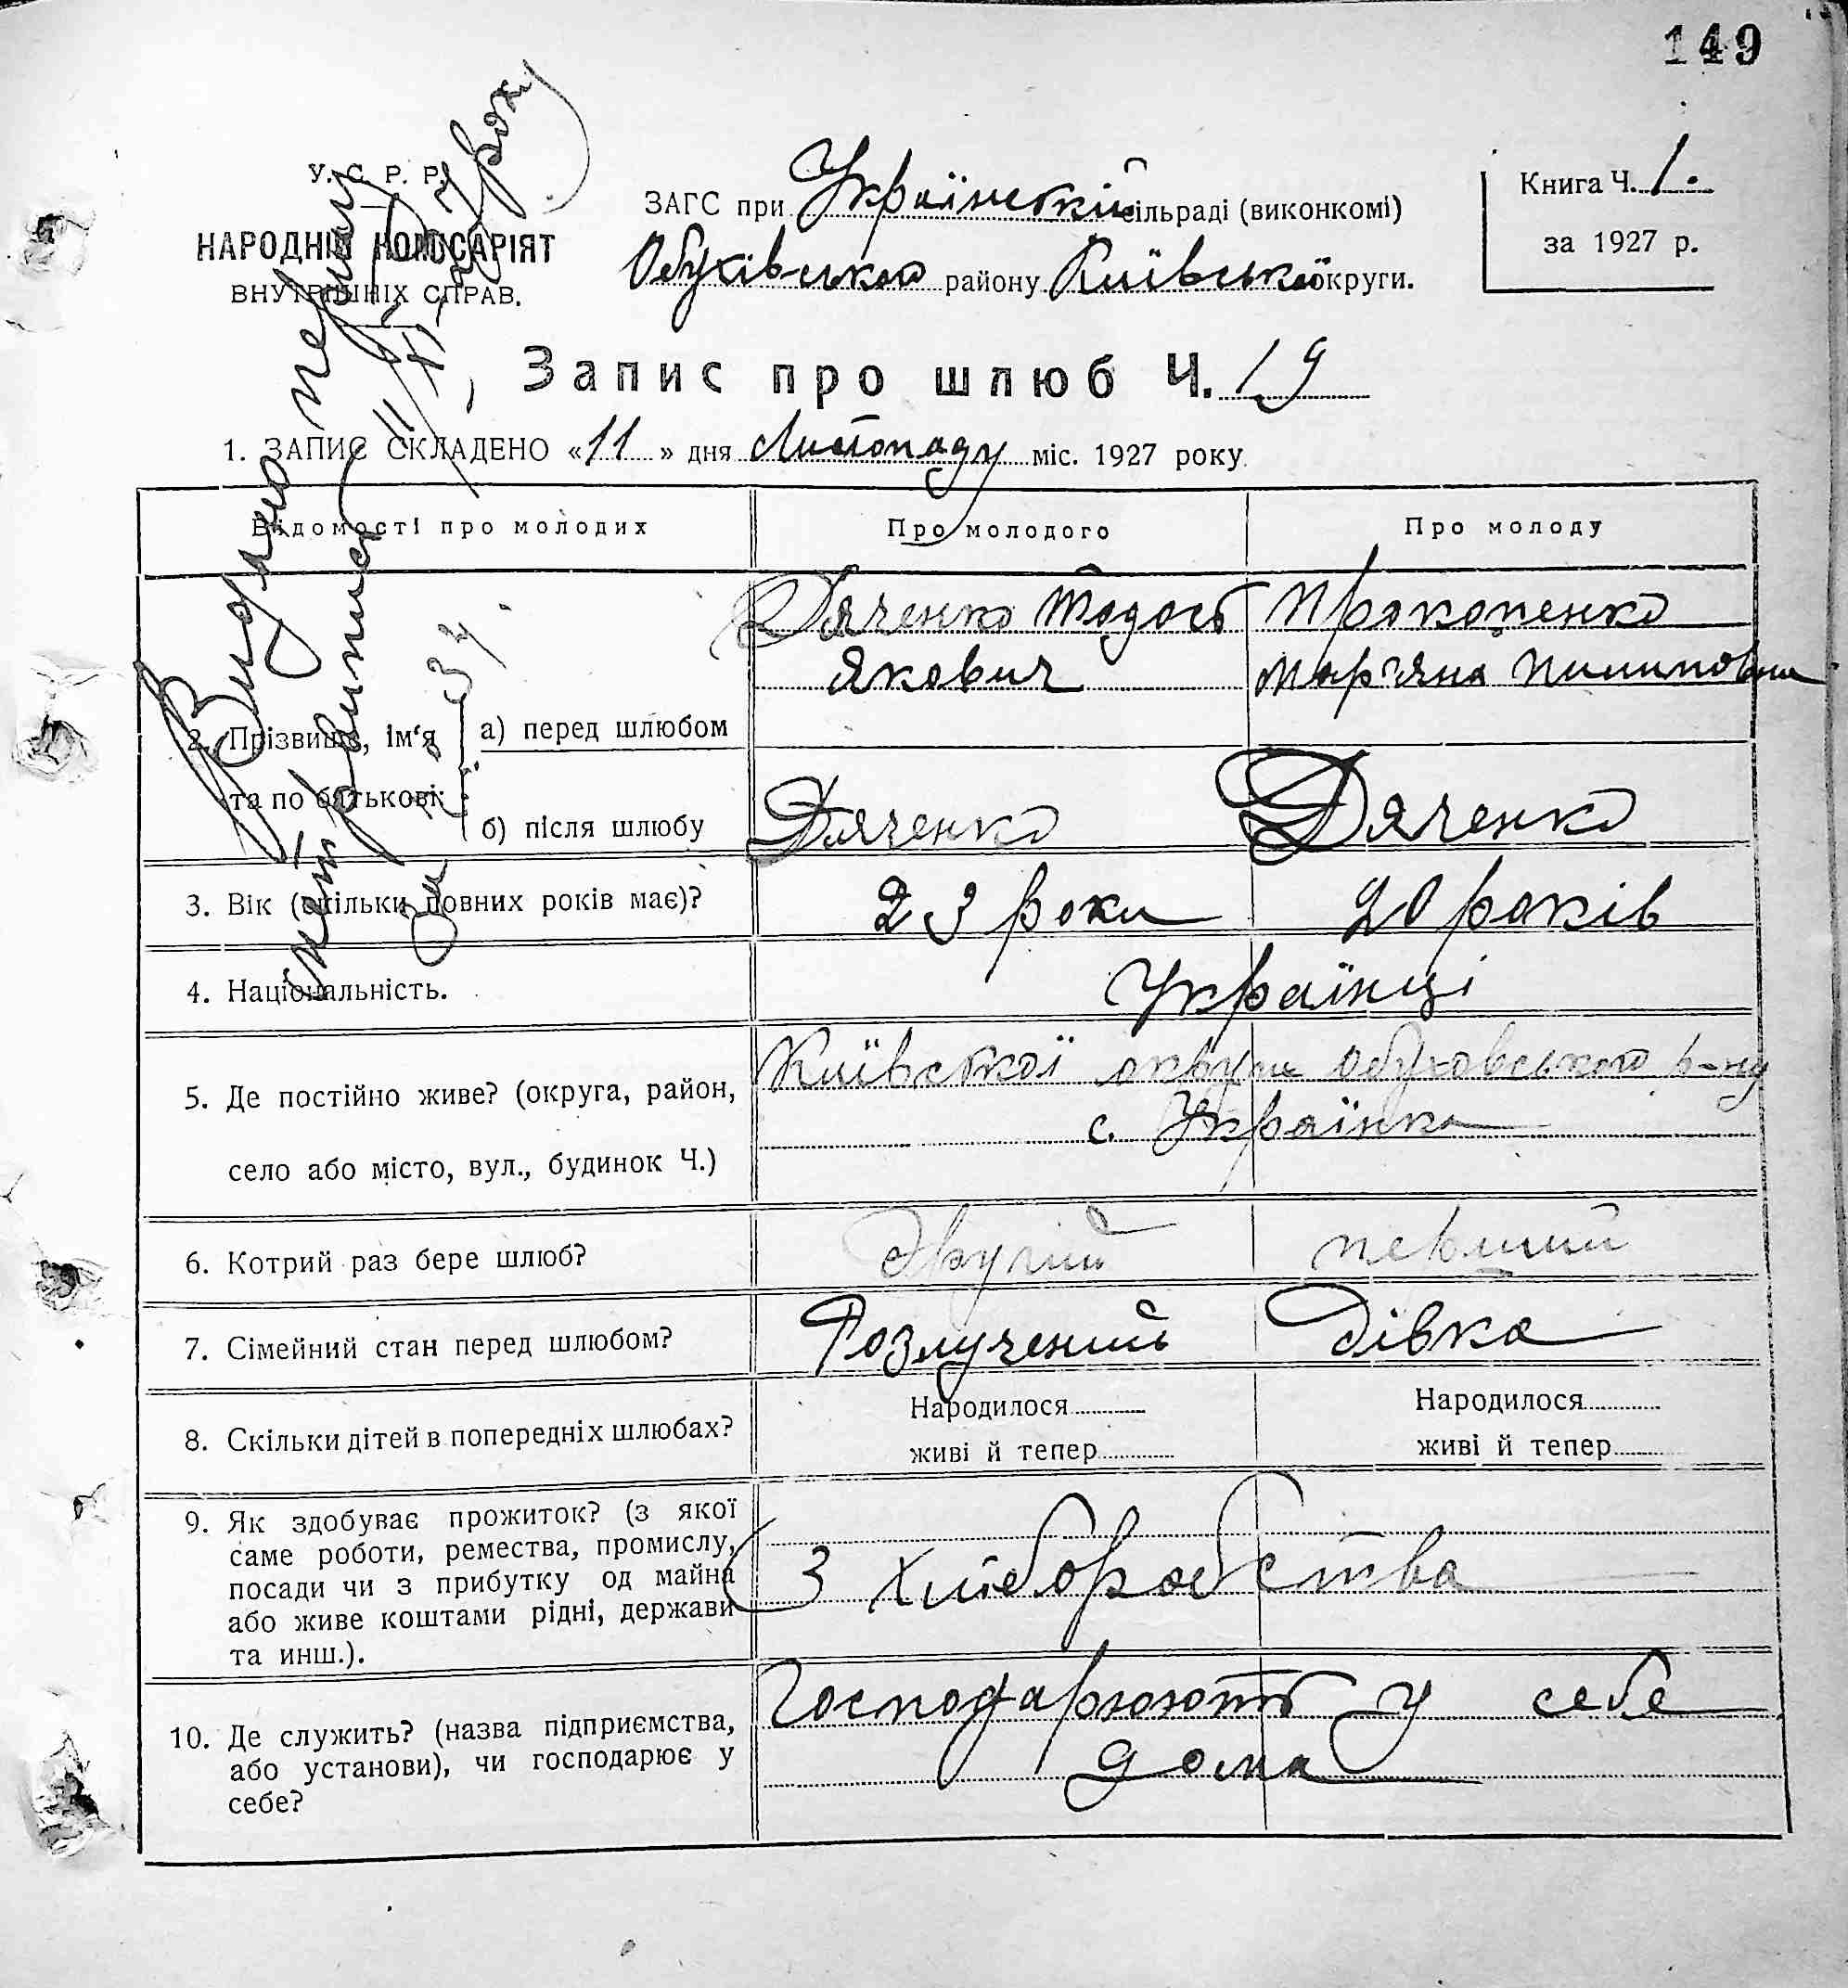 149
У. С. Р. Р.
НАРОДНІЙ КОМІСАРІЯТ
ВНУТРІШНІХ СПРАВ.
ЗАГС при Українській сільраді (виконкомі)
Обухівського району Київської округи.
Книга Ч. 1.
за 1927 р.
Видано першу
виписа
за № 34.
11/XI 27 року
Запис про шлюб Ч. 19
1. ЗАПИС СКЛАДЕНО «11» дня Листопаду міс. 1927 року
Відомості про молодих
Про молодого
Про молоду
2. Прізвище, ім'я
та по батькові:
а) перед шлюбом
Дяченко Тодось
Якович
Прокопенко
Мар'яна Пилиповна
б) після шлюбу
Дяченко
Дяченко
3. Вік (скільки повних років має)?
23 роки
20 років
4. Національність.
Українці
5. Де постійно живе? (округа, район,
село або місто, вул., будинок Ч.)
Київської округи Обуховського р-ну
с. Українка
6. Котрий раз бере шлюб?
другий
перший
7. Сімейний стан перед шлюбом?
Розлучений
Дівка
8. Скільки дітей в попередніх шлюбах?
Народилося
живі й тепер
Народилося
живі й тепер
9. Як здобуває прожиток? (з якої
саме роботи, ремества, промислу,
посади чи з прибутку од майна
або живе коштами рідні, держави
та инш.).
З хліборобства
10. Де служить? (назва підприємства,
або установи), чи господарює у
себе?
Господарюють у себе
дома